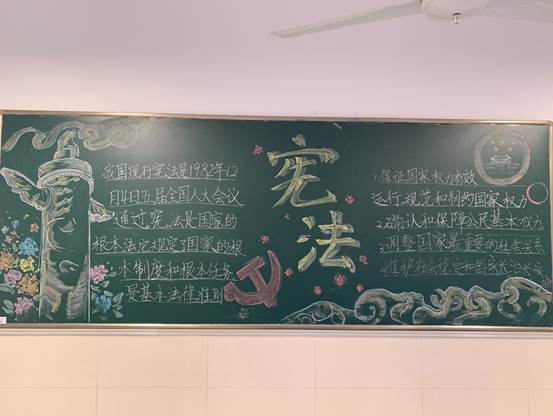 我国现行宪法是1982年12
月4日五届全国人大会议
通过。宪法是国家的
根本法它规定了国家的根
本制度和根本任务
是基本法律准则
宪法
1.保证国家权力有效
运行规范和制约国家权力
2.确认和保障公民基本权力
3.调整国家最重要的社会关系
维护社会稳定和国家长治久安